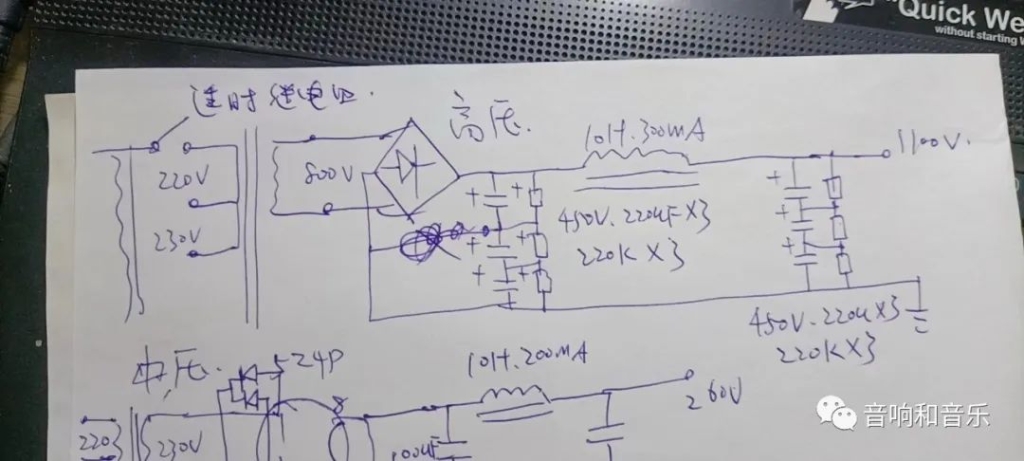 "Quick We
without starting W
延时继电器.
高压.
10H.300mA
1100V.
220V
800V
230V
450V.220uF×3
220K×3
450V.220u×3
220K×3
中压.
5Z4P
10H.200mA
260V
220
230V
100uF
音响和音乐